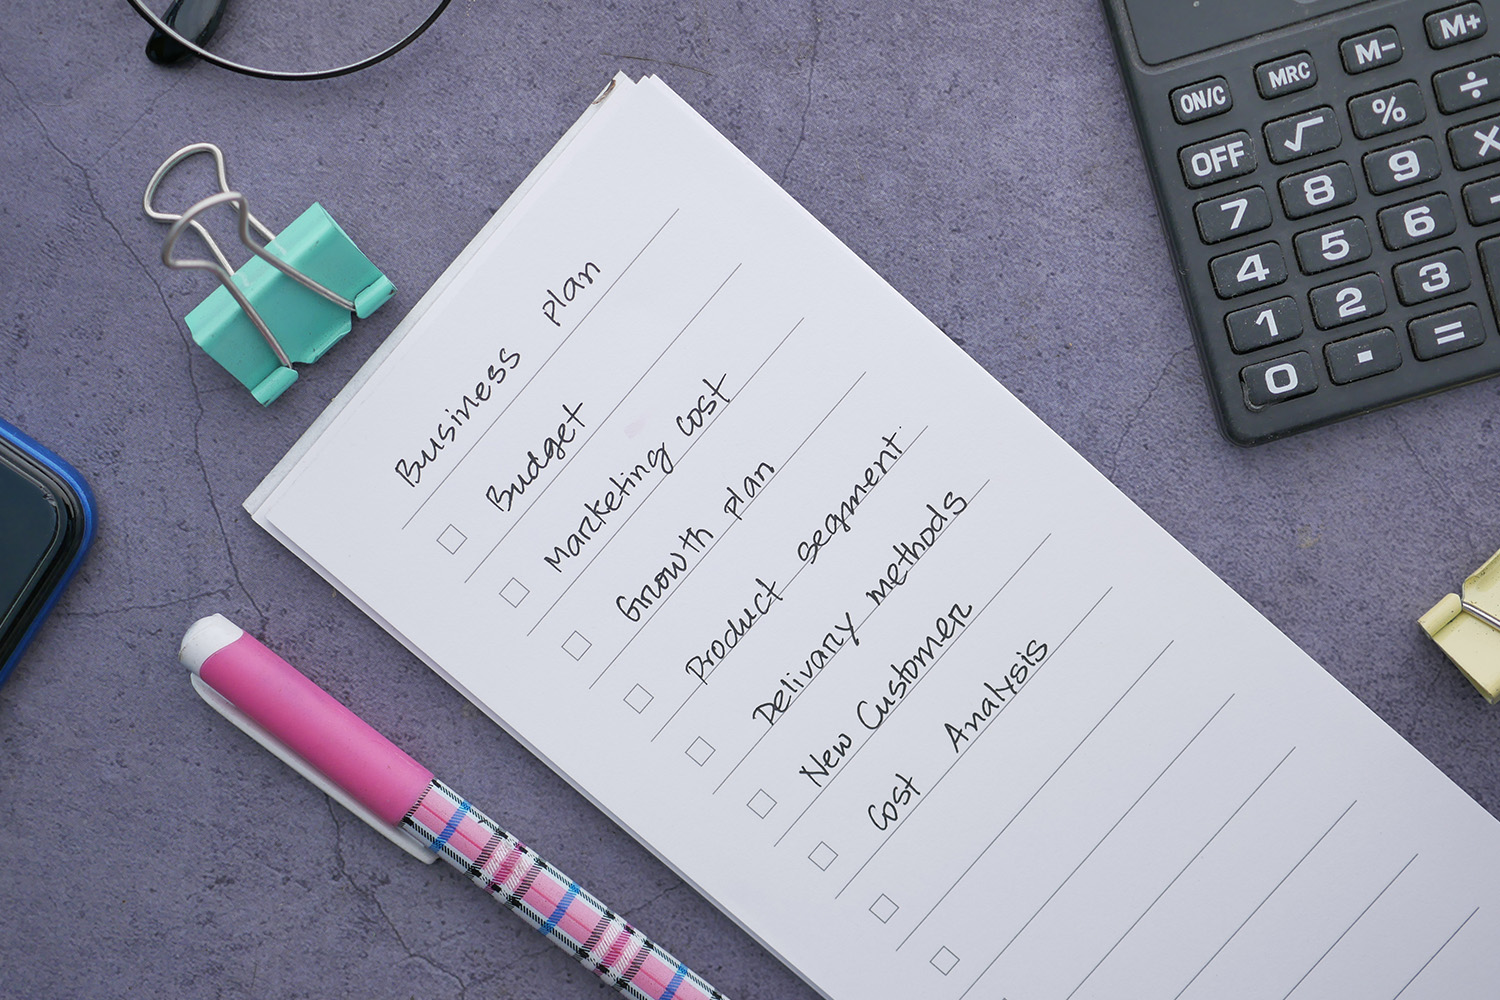 Business plan
Budget
Marketing cost
Growth plan
Product segment
Delivary methods
New Customer
Cost Analysis
ON/C MRC M- M+
OFF √ % ÷
7 8 9 X
4 5 6 -
1 2 3
0 . =